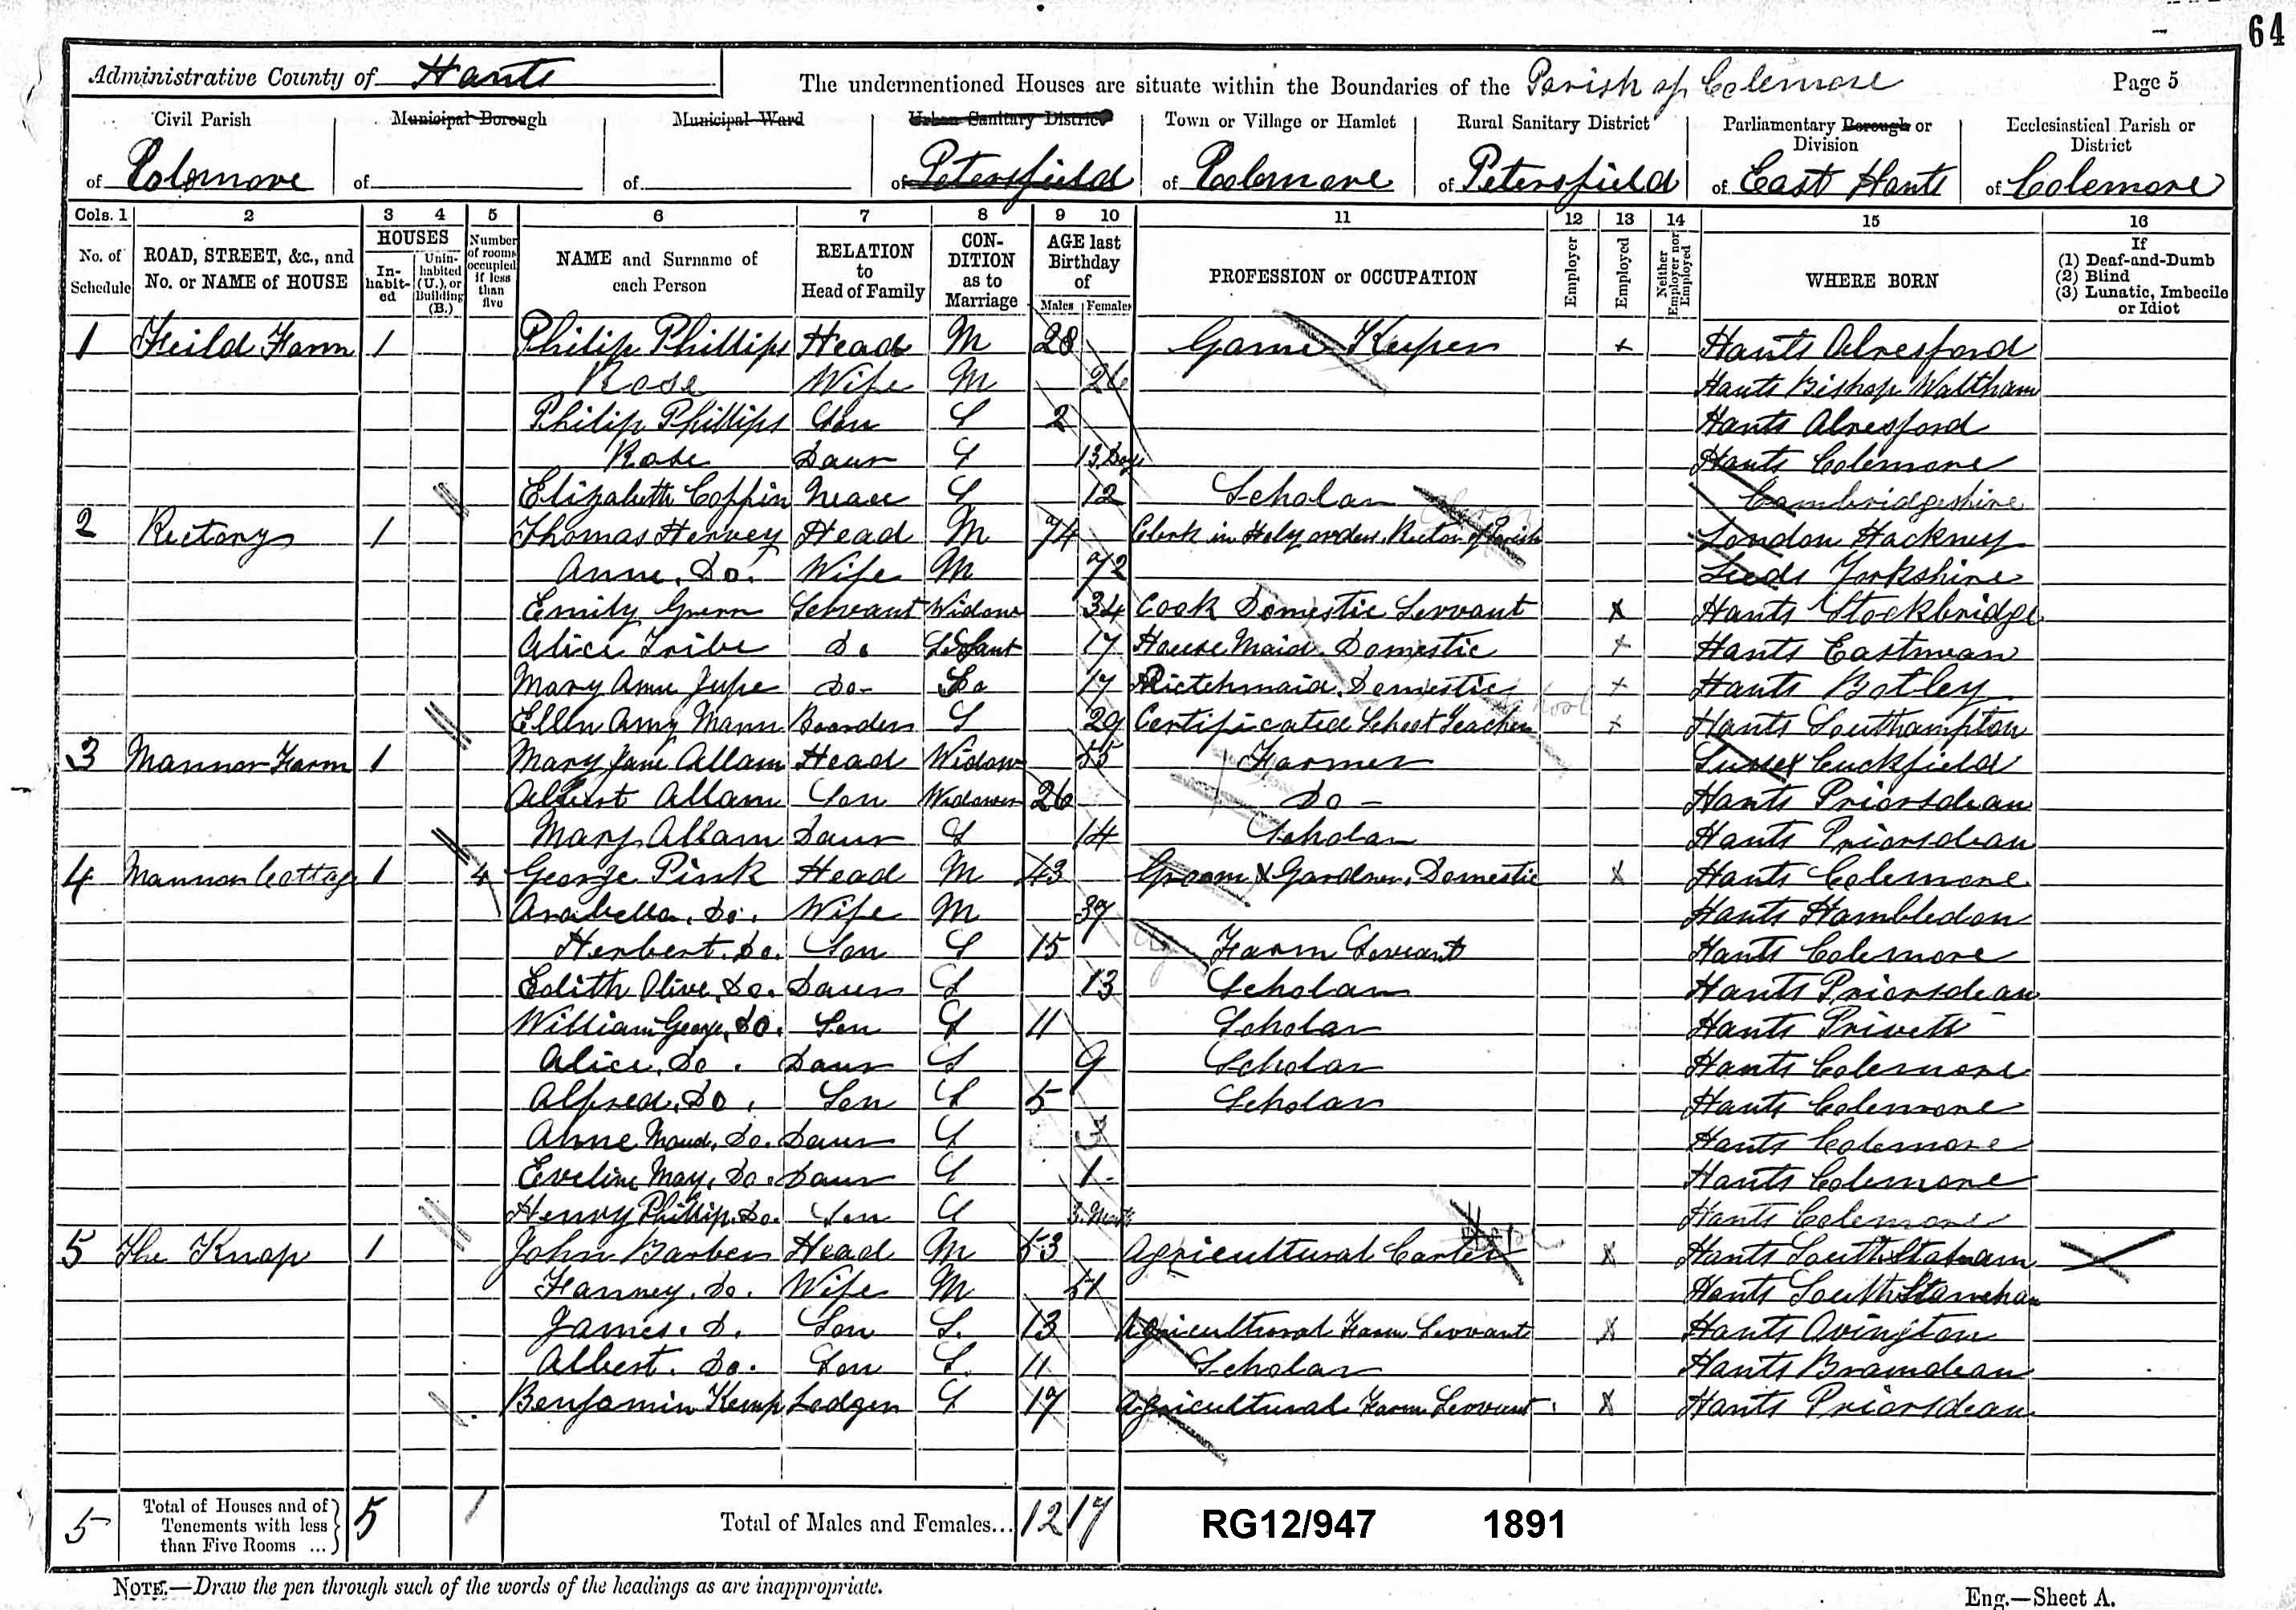 64
Administrative County of Hants The undermentioned Houses are situate within the Boundaries of the Parish of Colemore Page 5
Civil Parish Municipal Borough Municipal Ward Urban Sanitary District Town or Village or Hamlet Rural Sanitary District Parliamentary Borough or Division Ecclesiastical Parish or District
of Colemore of of of Petersfield of Colemore of Petersfield of East Hants of Colemore
Cols. 1 2 3 4 5 6 7 8 9 10 11 12 13 14 15 16
No. of Schedule ROAD, STREET, &c., and No. or NAME of HOUSE HOUSES In-habit-ed Unin-habited (U.), or Building (B.) Number of rooms occupied if less than five NAME and Surname of each Person RELATION to Head of Family CON-DITION as to Marriage AGE last Birthday of Males Females PROFESSION or OCCUPATION Employer Employed Neither Employer nor Employed WHERE BORN If (1) Deaf-and-Dumb (2) Blind (3) Lunatic, Imbecile or Idiot
1 Feild Farm 1 Philip Phillips Head M 28 Game Keeper x Hants Alresford
Rose Wife M 26 Hants Bishop Waltham
Philip Phillips Son S 2 Hants Alresford
Rose Daur S 13 Days Hants Colemore
Elizabeth Coppin Neace S 12 Scholar Cambridgeshire
2 Rectory 1 Thomas Hervey Head M 74 Clerk in Holy orders, Rector of Parish London Hackney
Anne. Do. Wife M 72 Leeds Yorkshire
Emily Green Servant Widow 34 Cook Domestic Servant X Hants Stockbridge
Alice Tribe Do 17 House Maid Domestic x Hants Eastmean
Mary Ann Jupe Do- Do 17 Domestic x Hants Botley
Ellen Amy Mann Boarder S 29 Certificated School Teacher x Hants Southampton
3 Mannor Farm 1 Mary Jane Allam Head Widow 55 Farmer Sussex Cuckfield
Albert Allam Son Widower 26 Do- Hants Priorsdean
Mary Allam Daur S 14 Scholar Hants Priorsdean
4 Mannor Cottage 1 4 George Pink Head M 43 Groom & Gardner, Domestic X Hants Colemore
Arabella. Do. Wife M 37 Hants Hambledon
Herbert. Do. Son S 15 Ag Farm Servant Hants Colemore
Edith Olive, Do. Daur S 13 Scholar Hants Priorsdean
William George, Do. Son S 11 Scholar Hants Privett
Alice, Do. Daur S 9 Scholar Hants Colemore
Alfred, Do. Son S 5 Scholar Hants Colemore
Anne Maud, Do. Daur S 3 Hants Colemore
Eveline May, Do. Daur S 1- Hants Colemore
Henry Phillip. Do. Son S 3 Month Hants Colemore
5 The Knap 1 John Barber Head M 53 Agricultural Carter X Hants South
Fanney. Do. Wife M 51 Hants South
James. D. Son S. 13 Agricultural Farm Servant X Hants Avington
Albert. Do. Son S. 11 Scholar Hants Bramdean
Benjamin Kemp Lodger S 17 Agricultural Farm Servant. X Hants Priorsdean
5 Total of Houses and of Tenements with less than Five Rooms ... 5 1 Total of Males and Females... 12 17 RG12/947 1891
NOTE.—Draw the pen through such of the words of the headings as are inappropriate. Eng.—Sheet A.